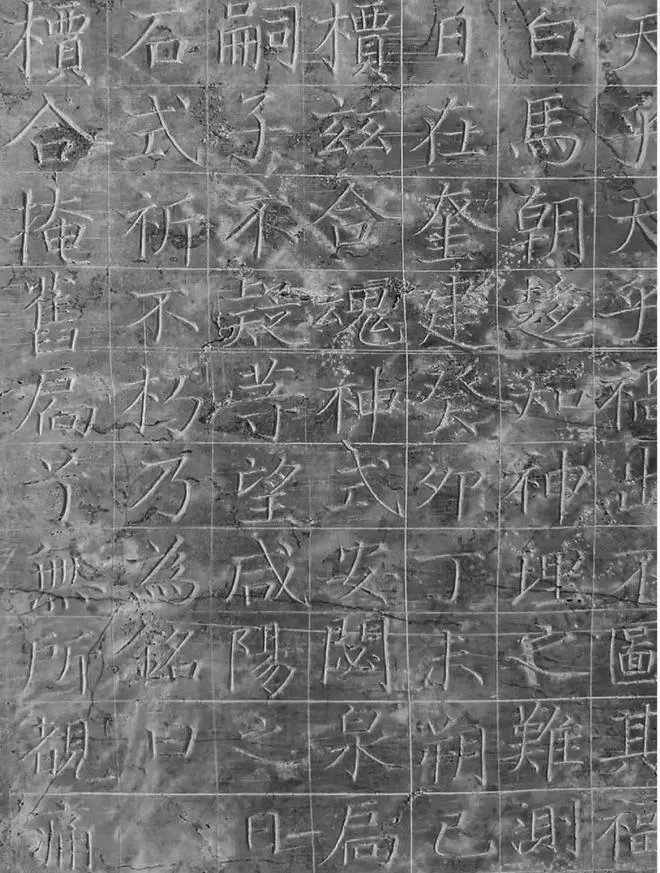 天乎天乎出不圖其
白馬朝趍知神理之難測
日在奎建癸卯丁未朔己
櫝兹合魂神式安閟泉扃
嗣子不疑等望咸陽之日
石式祈不朽乃為銘曰
櫝合掩舊扃兮無所覩痛